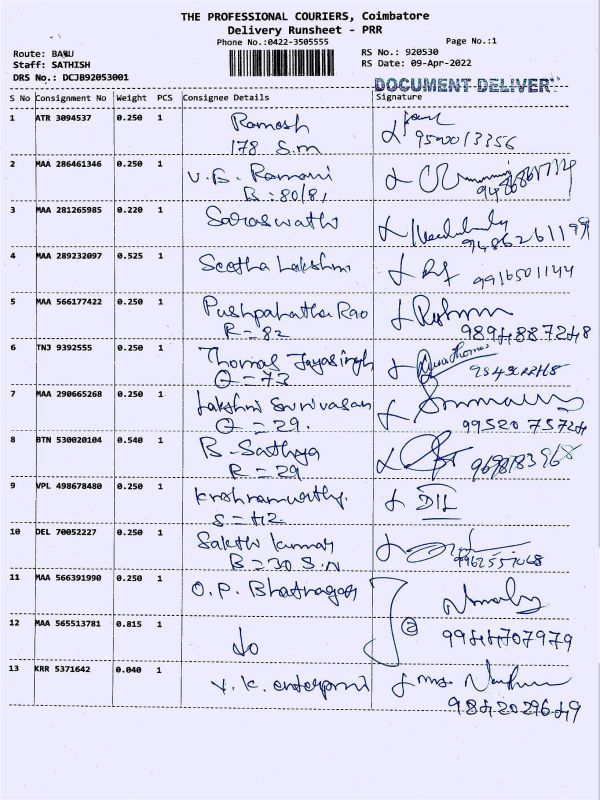 THE PROFESSIONAL COURIERS, Coimbatore
Delivery Runsheet - PRR
Phone No.:0422-3505555
Page No.:1
Route: BABU
RS No.: 920530
Staff: SATHISH
RS Date: 09-Apr-2022
DRS No.: DCJB92053001
DOCUMENT DELIVER
S No Consignment No Weight PCS Consignee Details Signature
1 ATR 3094537 0.250 1 Ramesh
178 S.M
2 MAA 286461346 0.250 1 V.B. Ramani
B = 80/81
3 MAA 281265985 0.220 1 Saraswathi
4 MAA 289232097 0.525 1 Seetha Lakshmi
9916501144
5 MAA 566177422 0.250 1 Pushpalatha Rao
R = 82 9894887248
6 TNJ 9392555 0.250 1 Thomas Jayasingh
Q = 73
7 MAA 290665268 0.250 1 Lakshmi Srinivasan
Q = 29. 9952075724
8 BTN 530020104 0.540 1 B. Sathya
R = 29 9698183968
9 VPL 498678480 0.250 1 Krishnamurthy.
S = 42 DIL
10 DEL 70052227 0.250 1 Sakthi Kumar
B = 30 S.N
11 MAA 566391990 0.250 1 O.P. Bhatnagar
2
12 MAA 565513781 0.815 1 do 9944707979
13 KRR 5371642 0.040 1 V.K. enterprise
9842029649